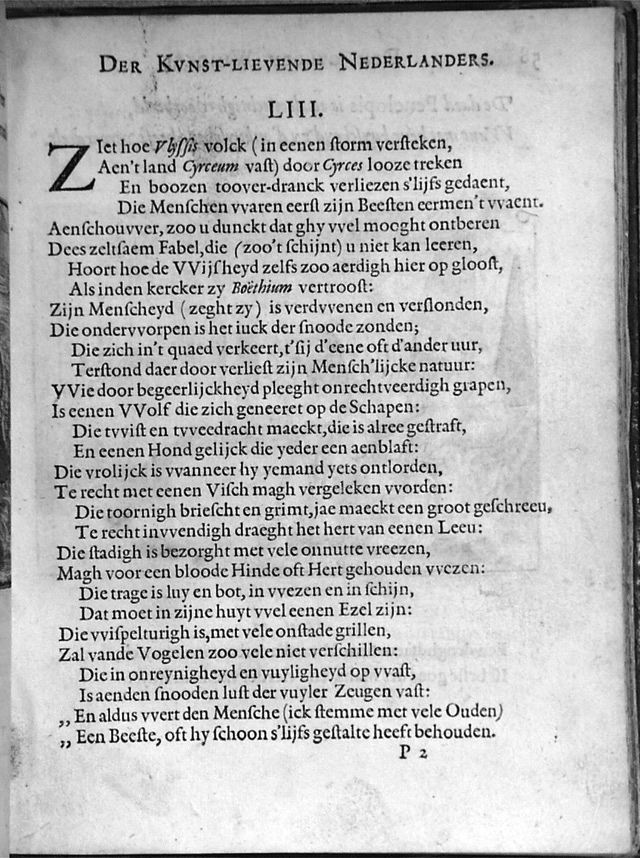 DER KVNST-LIEVENDE NEDERLANDERS.
LIII.
ZIet hoe Vlyſſis volck (in eenen ſtorm verſteken,
Aen't land Cyrceum vaſt) door Cyrces looze treken
En boozen toover-dranck verliezen s'lijfs gedaent,
Die Menſchen vvaren eerſt zijn Beeſten eermen't vvaent.
Aenſchouvver, zoo u dunckt dat ghy vvel mooght ontberen
Dees zeltſaem Fabel, die (zoo't ſchijnt) u niet kan leeren,
Hoort hoe de VVijſheyd zelfs zoo aerdigh hier op glooſt,
Als inden kercker zy Boëthium vertrooſt:
Zijn Menſcheyd (zeght zy) is verdvvenen en verſlonden,
Die ondervvorpen is het iuck der ſnoode zonden;
Die zich in't quaed verkeert, t'ſij d'eene oft d'ander uur,
Terſtond daer door verlieſt zijn Menſch'lijcke natuur:
VVie door begeerlijckheyd pleeght onrechtveerdigh grapen,
Is eenen VVolf die zich geneeret op de Schapen:
Die tvviſt en tvveedracht maeckt, die is alree geſtraft,
En eenen Hond gelijck die yeder een aenblaft:
Die vrolijck is vvanneer hy yemand yets ontlorden,
Te recht met eenen Viſch magh vergeleken vvorden:
Die toornigh brieſcht en grimt, jae maeckt een groot geſchreeu,
Te recht invvendigh draeght het hert van eenen Leeu:
Die ſtadigh is bezorght met vele onnutte vreezen,
Magh voor een bloode Hinde oft Hert gehouden vvezen:
Die trage is luy en bot, in vvezen en in ſchijn,
Dat moet in zijne huyt vvel eenen Ezel zijn:
Die vviſpelturigh is, met vele onſtade grillen,
Zal vande Vogelen zoo vele niet verſchillen:
Die in onreynigheyd en vuyligheyd op vvaſt,
Is aenden ſnooden luſt der vuyler Zeugen vaſt:
,, En aldus vvert den Menſche (ick ſtemme met vele Ouden)
,, Een Beeſte, oft hy ſchoon s'lijfs geſtalte heeft behouden.
P 2